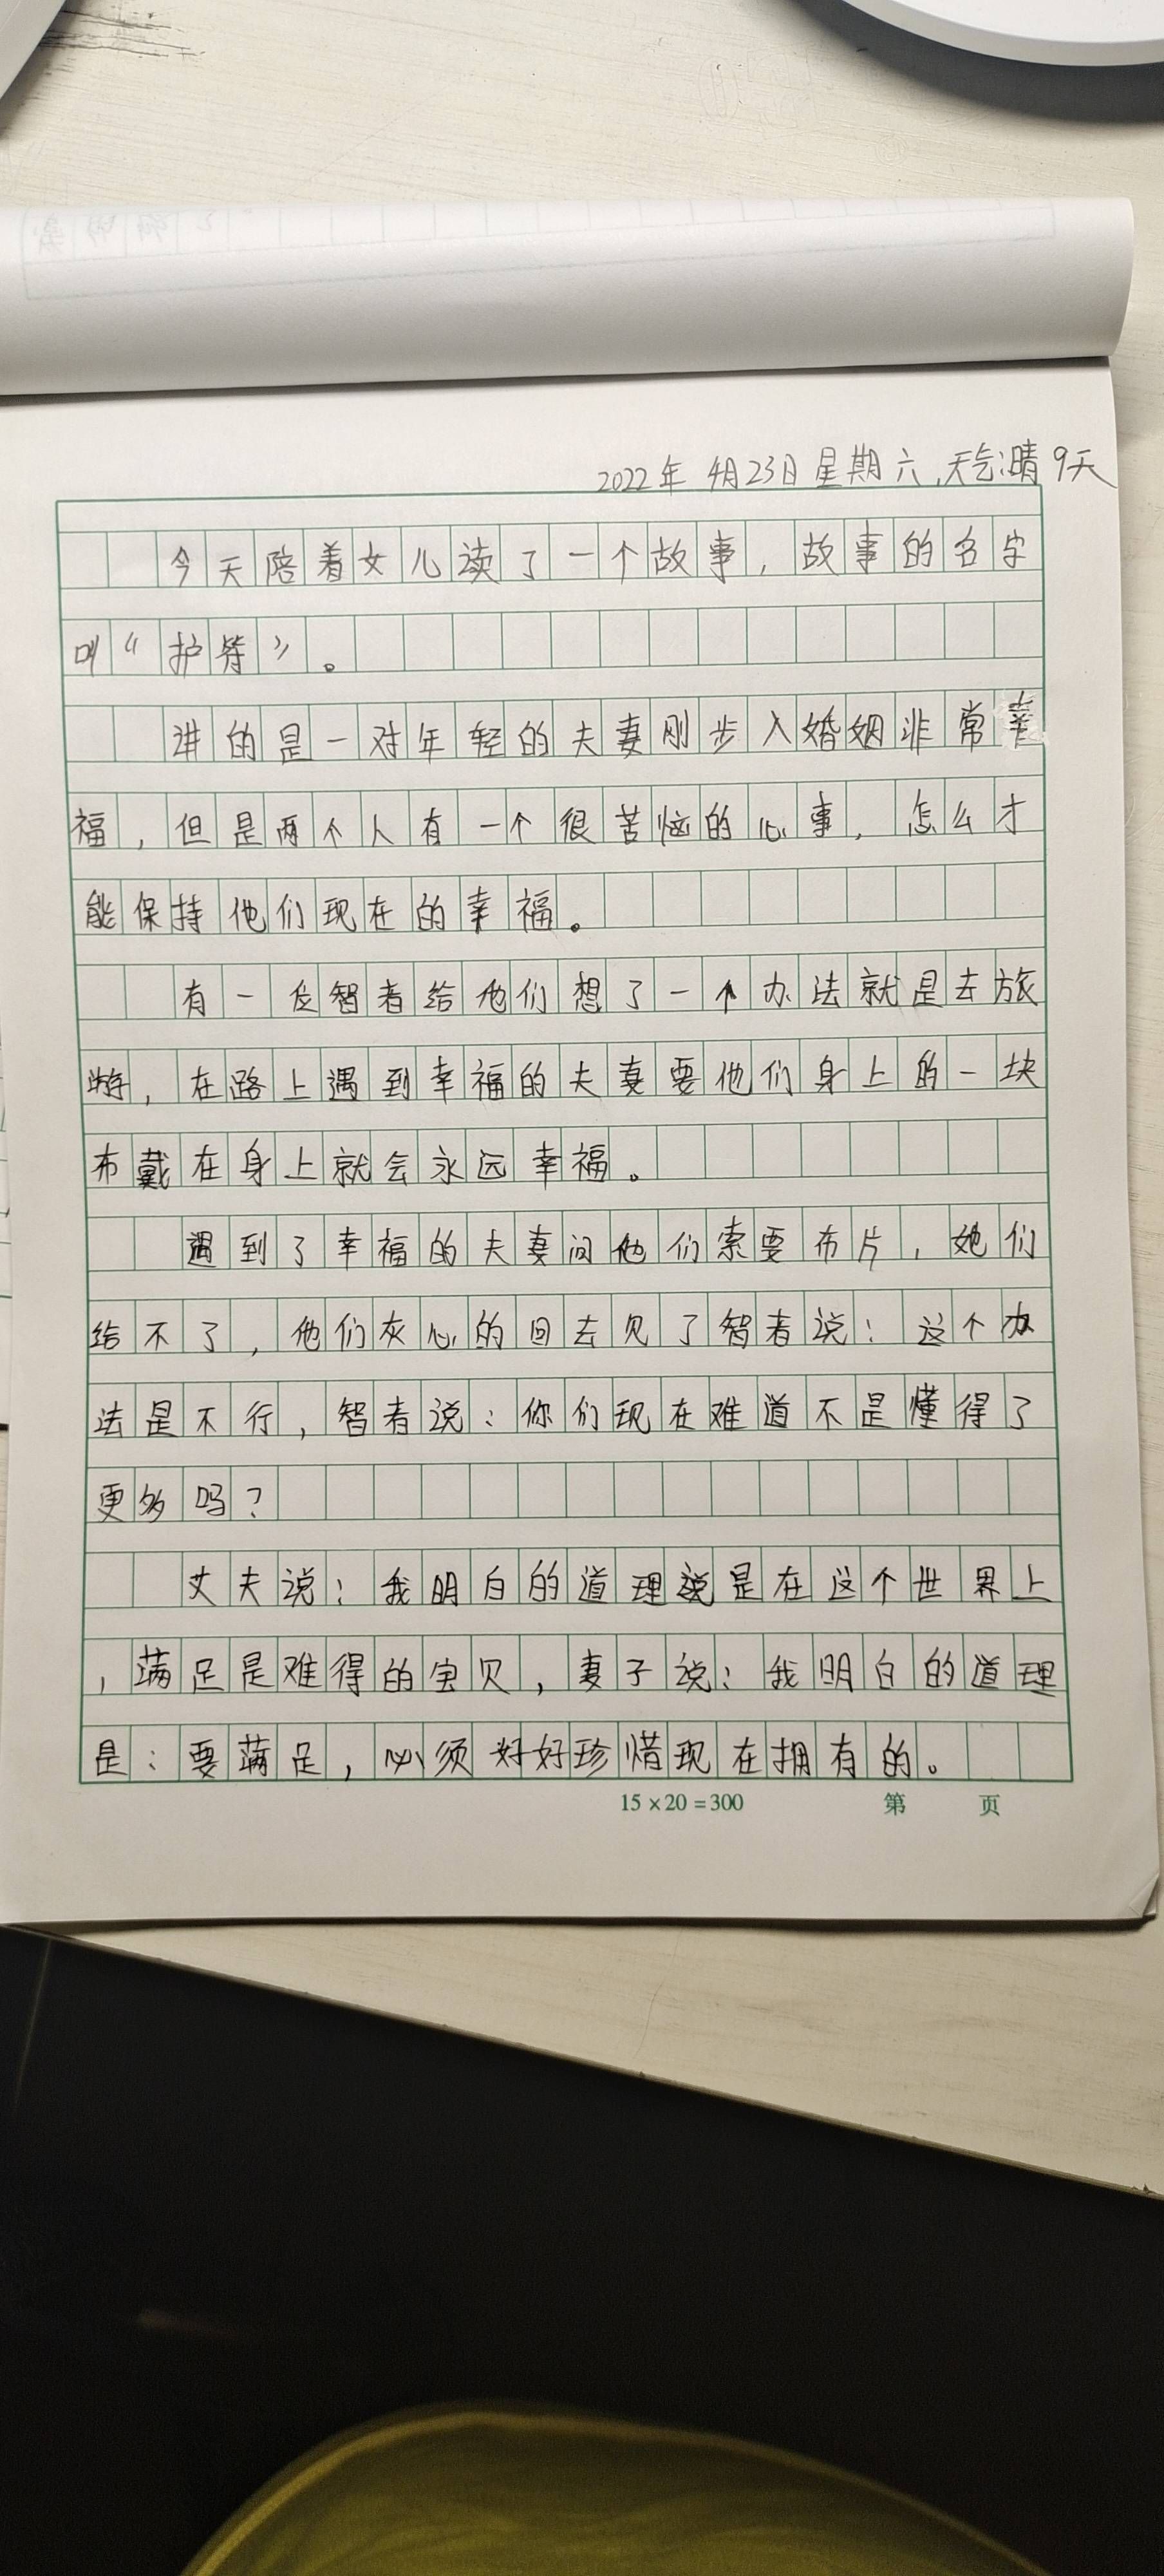 2022年 4月23日 星期六,天气:晴 9天
今天陪着女儿读了一个故事,故事的名字
叫《护符》。
讲的是一对年轻的夫妻刚步入婚姻非常幸
福,但是两个人有一个很苦恼的心事,怎么才
能保持他们现在的幸福。
有一位智者给他们想了一个办法就是去旅
游,在路上遇到幸福的夫妻要他们身上的一块
布戴在身上就会永远幸福。
遇到了幸福的夫妻问他们索要布片,她们
给不了,他们灰心的回去见了智者说:这个办
法是不行,智者说:你们现在难道不是懂得了
更多吗?
丈夫说:我明白的道理说是在这个世界上
,满足是难得的宝贝,妻子说:我明白的道理
是:要满足,必须好好珍惜现在拥有的。
15×20=300 第 页